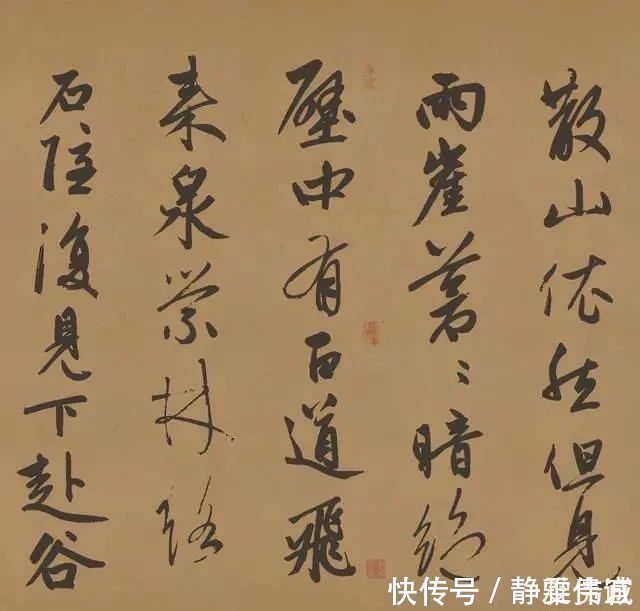 散山依然但見
兩崖蒼〻暗絕
壁中有百道飛
來泉縈林絡
石隱復見下赴谷
快传号 / 静雅